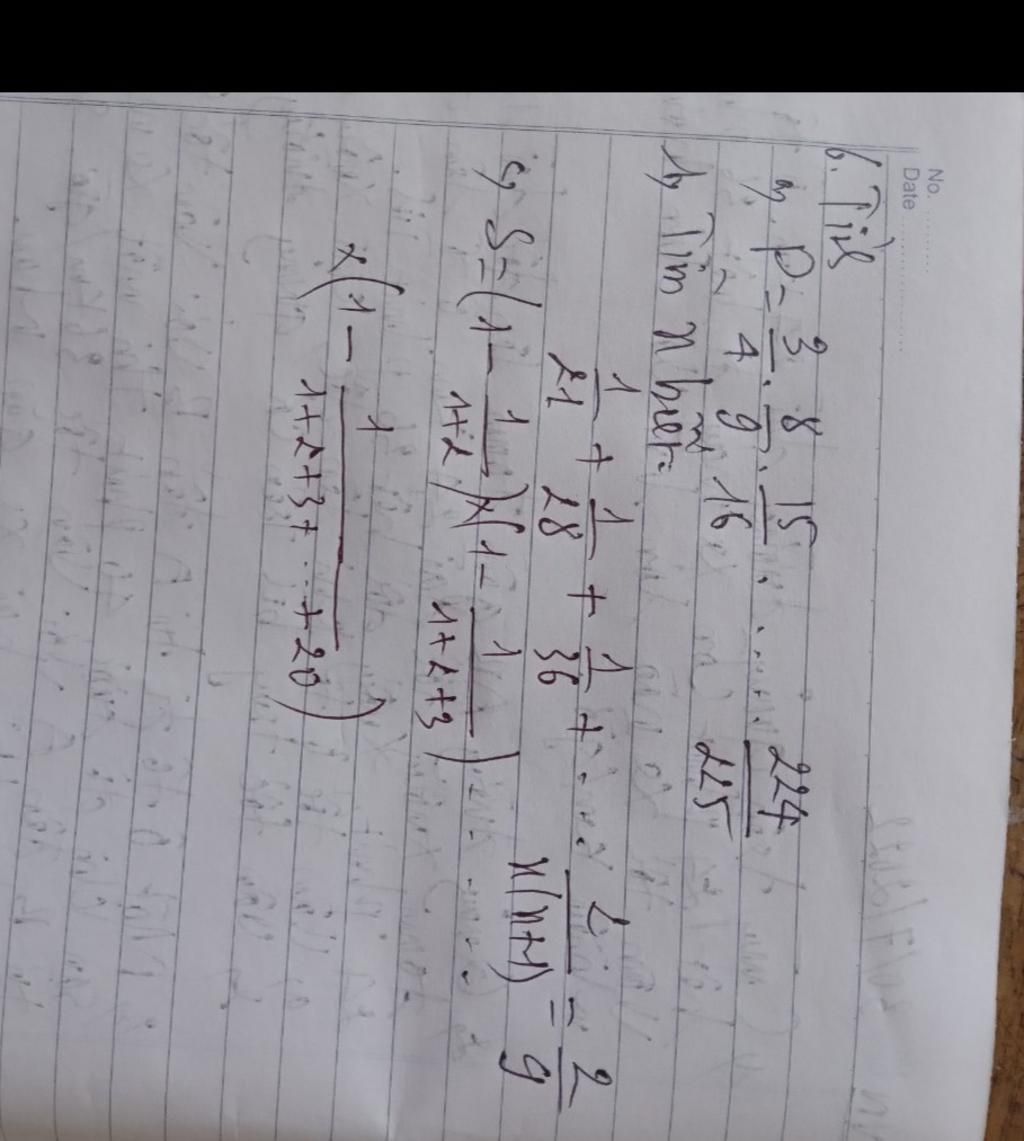 No.
Date
6. Tính
a, P = 3/4 . 8/9 . 15/16 ..... 224/225
b, Tìm x biết:
1/21 + 1/28 + 1/36 + ... 2/x(x+1) = 2/9
c, S = (1 - 1/1+2) x (1 - 1/1+2+3)
x (1 - 1/1+2+3+...+20)